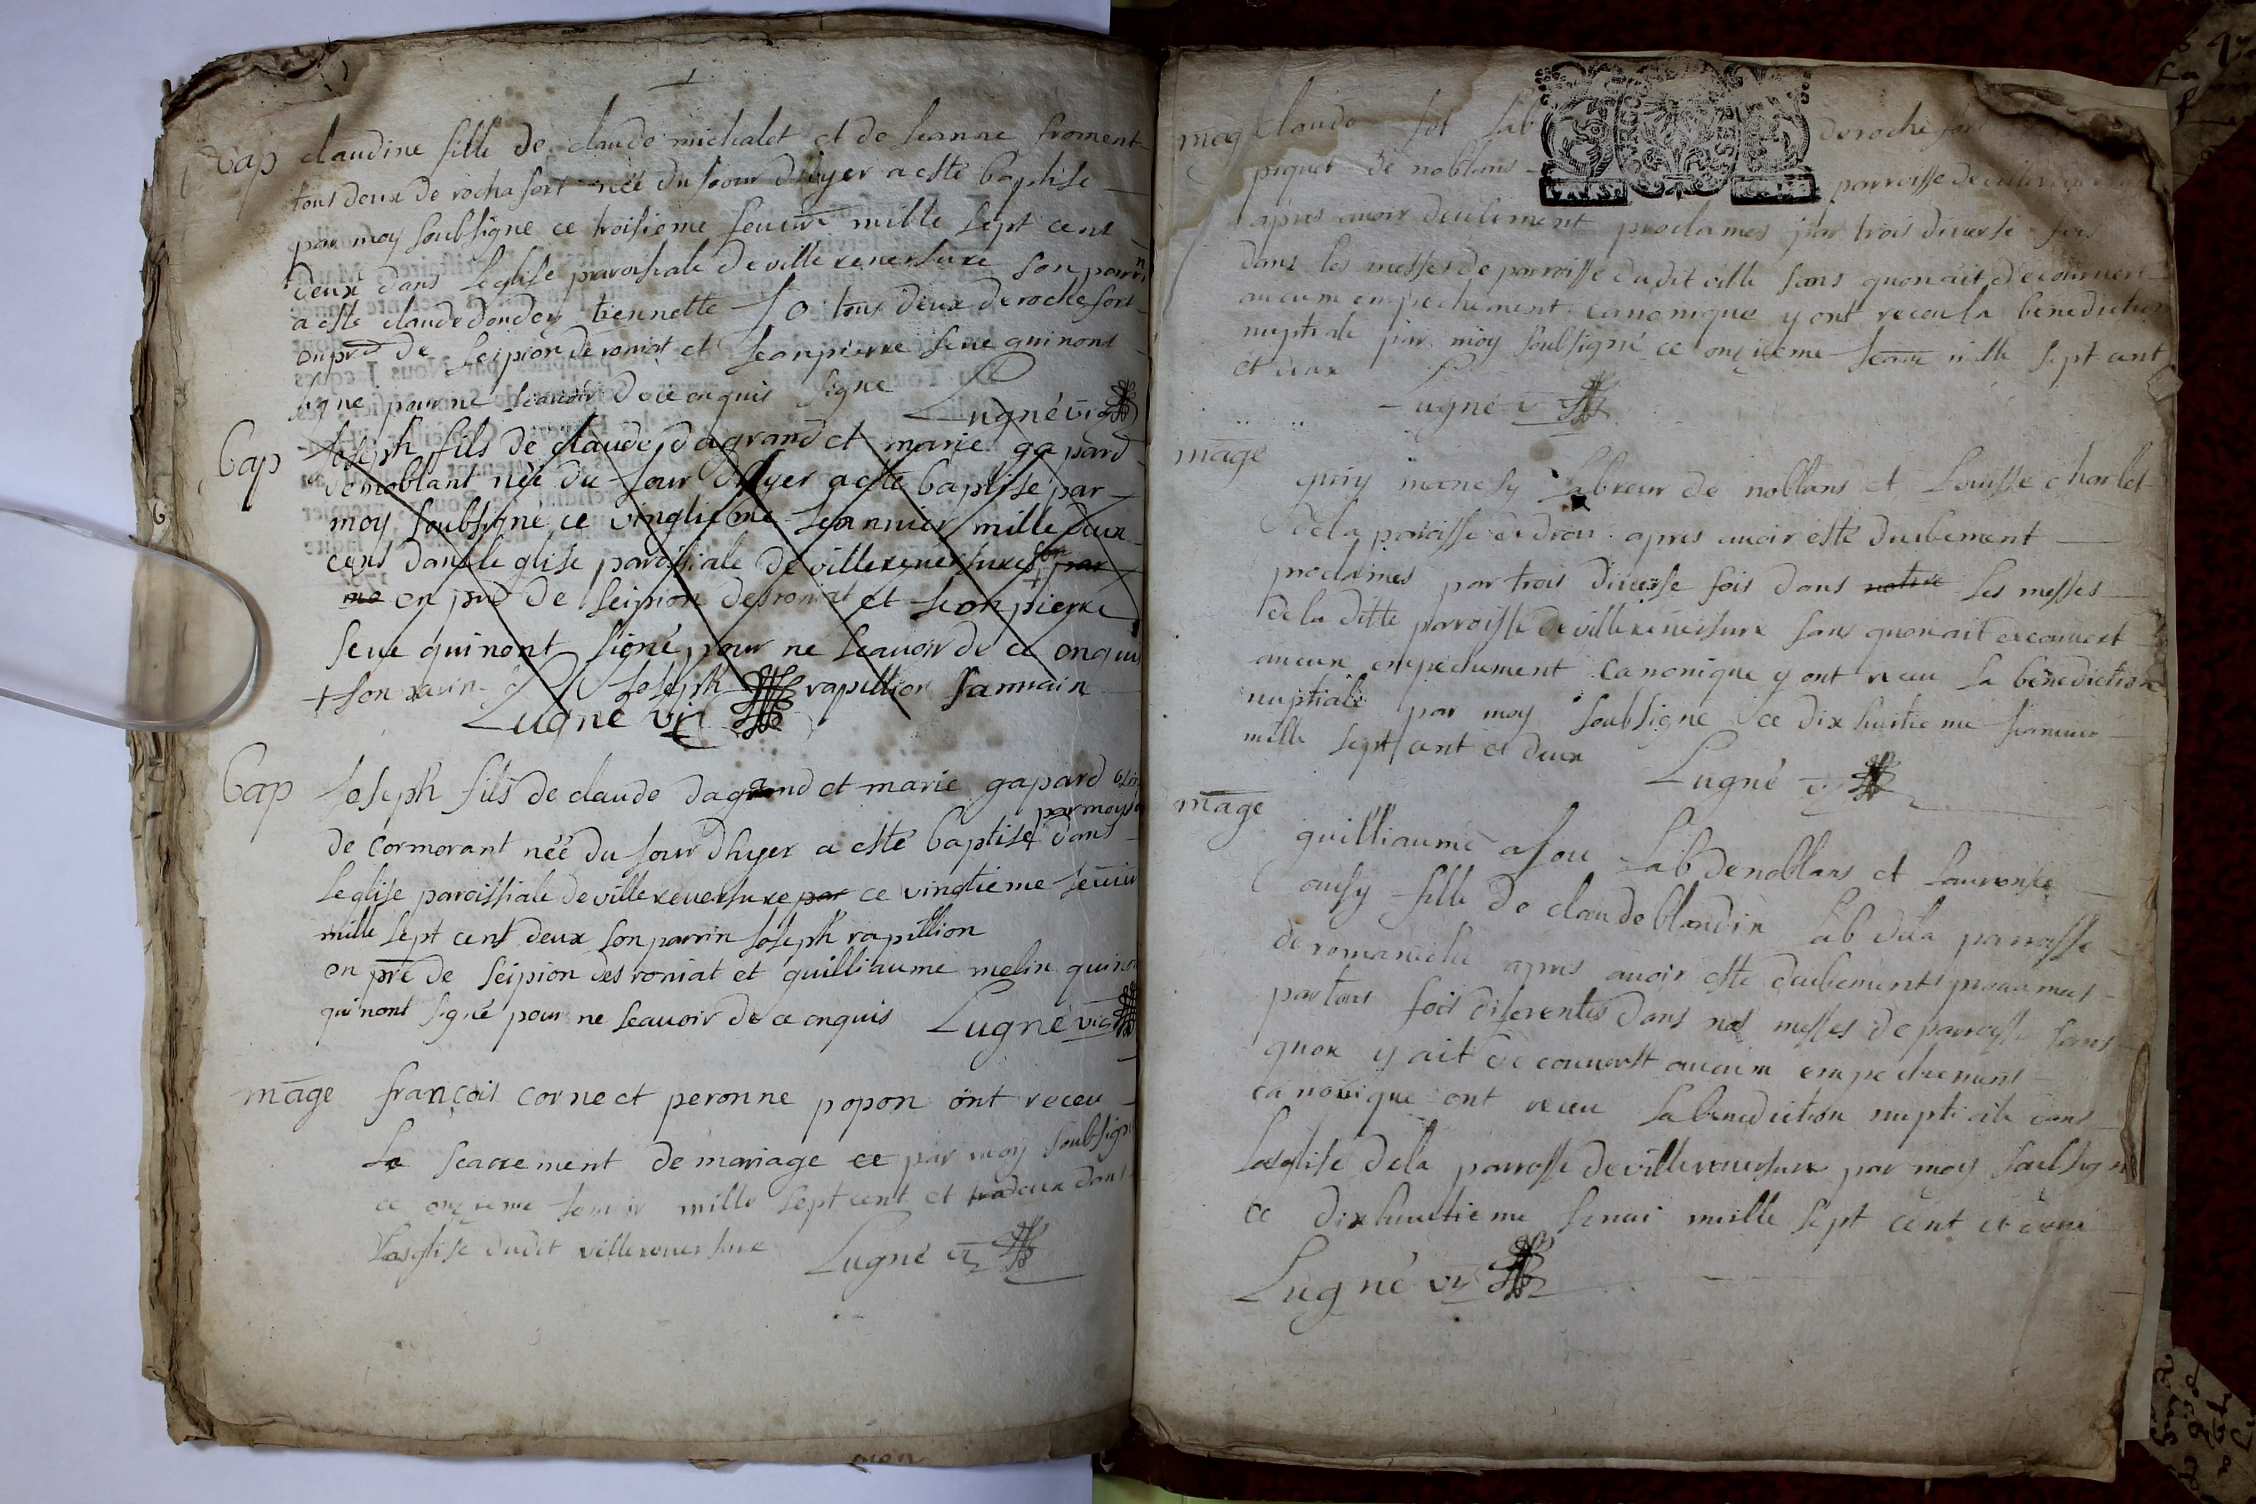 1
bap claudine fille de claude michalet et de Jeanne froment
tous deux de rochafort née du Jour dhyer a esté baptise
par moy soubsigne ce troisieme Jenvir mille sept cens
deux dans leglise paroissiale de villereversure son parrin
a este claude dondey tiennette tous deux de rochefort
en pre de scipion de romat et Jeanpierre seve qui nont
signe pour ne scavoir de ce enquis signe Lugné vic
bap Joseph fils de claude dagrand et marie gapard
de noblant née du Jour dhyer a esté baptisé par
moy soubsigne ce vingtieme Jeannier mille deux
cens dans le glise paroissiale de villereversure son par
me en pre de scipion desromat et Jeanpierre
seve qui nont signé pour ne scavoir de ce enquis
+ son parin Joseph rapillion Jannain
Lugné vic
bap Joseph fils de claude dagrand et marie gapard
par moy
de cormorant née du Jour dhyer a esté baptisé dans
leglise paroissiale de villereversure par ce vingtieme Jenvir
mille sept cent deux son parrin Joseph rapillion
en pre de scipion des romat et guilliaume melin quinon
qui nont signé pour ne scavoir de ce enquis Lugné vic
mage françois corne et peronne popon ont receu
Le scacrement de mariage ce par moy soubsigne
ce onzieme Jenvir mille sept cent et deux dans
lasglise dudit villereversure Lugné vi
mag claude lab de rochefort
piquet de noblans parroisse de
apres avoir deulement proclames par trois diverse fois
dans les messes de parroisse dudit ville sans quon ait decouvert
aucun empechement canonique y ont receu la benediction
nuptiale par moy soubsigné ce onzieme Jenvi mille sept cent
et deux Lugné v
mage Labreur de noblans et Louisse charlet
de la paroisse de drom apres avoir esté duebement
proclames par trois diverse fois dans notre les messes
de la ditte parroisse de villereversure sans quon ait decouvert
aucun empechement canonique y ont receu la benediction
nuptiale par moy soubsigne ce dix huitieme Jenvier
mille sept cent et deux Lugné v
mage guilliaume lab de noblans et
fille de claude blondin lab de la parroisse
de romaneche apres avoir esté duebements proclames
par trois fois diferentes dans nos messes de parroisse sans
quon y ait decouverst aucum empechement
canonique ont receu la benediction nuptiale dans
lasglise dela parrosse de villereversure par moy soubsigne
ce dixhuictieme Jenvi mille sept cent et deux
Lugné vi